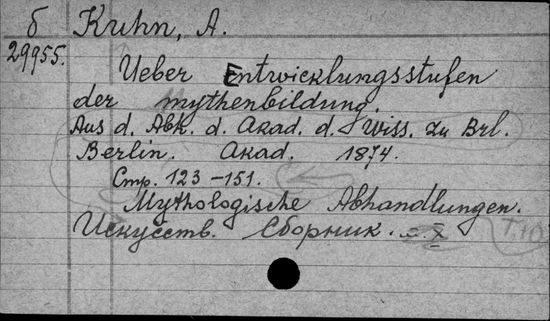 б Kuhn, A.
29955.
Ueber Entwicklungsstufen
der mythenbildung.
Aus d. Abh. d. Akad. d. Wiss. zu Brl.
Berlin. Akad. 1874.
Стр. 123-151.
Mythologische Abhandlungen.
Искусств. Сборник. с. X
Т.10